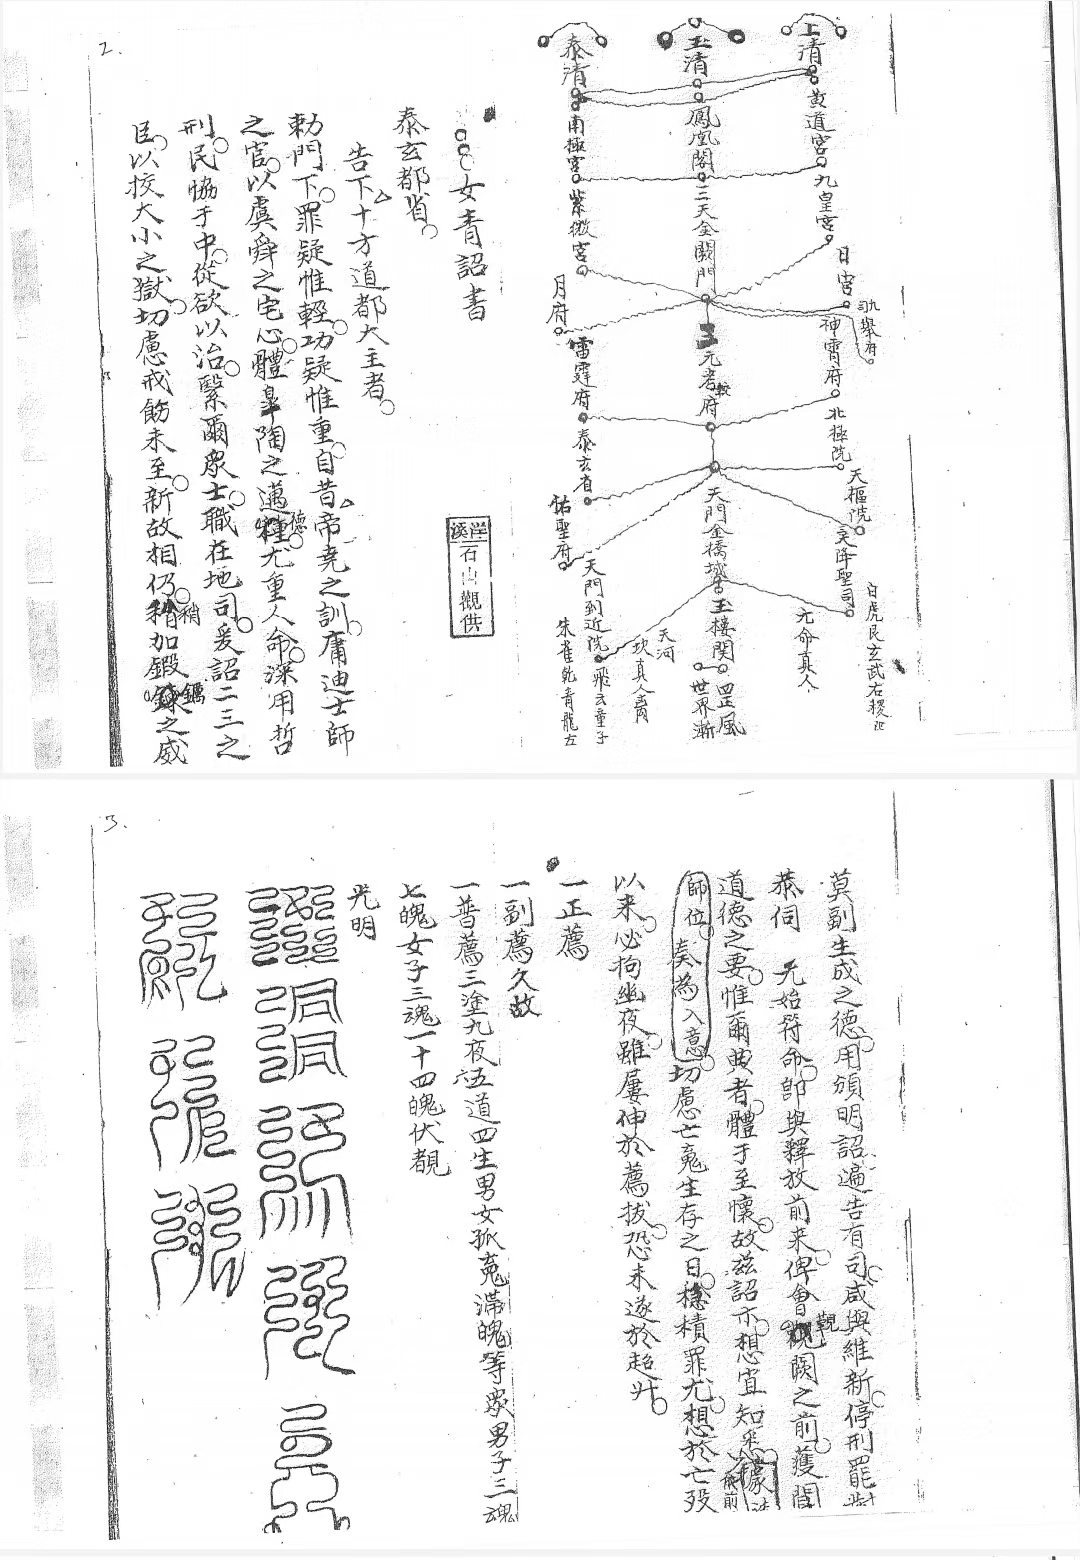 2.
上清
黄道宮
九皇宮
日宮
神霄府
北極院
天樞院
玉清
鳳凰閣
三天金闕門
元考府
天門金橋
玉樓関
罡風
世界漸
元命真人
天河
泰清
南極宮
紫微宮
月府
雷霆府
泰玄省
佑聖府
天門到近院
飛玄童子
朱雀乾青龍左
洋溪
石山觀供
女青詔書
泰玄都省
告下十方道都大主者
勅門下罪疑惟輕功疑惟重自昔帝堯之訓庸迪士師
之官以虞舜之宅心體臯陶之邁種德尤重人命深用哲
刑民恊于中從欲以治繄爾衆士職在地司爰詔二三之
臣以挍大小之獄切慮戒飭未至新故相仍稍加鍛鍊之威
3.
莫副生成之德用頒明詔遍告有司咸與維新停刑罷
恭伺 元始符命卽與釋放前来俾會觀闕之前獲聞
道德之要惟爾典者體于至懷故兹詔示想宜知悉
師位奏為入意切慮亡䰟生存之日積罪尤想於亡歿
以来必拘幽夜雖屢伸於薦拔恐未遂於超升
一正薦
一副薦久故
一普薦三塗九夜六五道四生男女孤䰟滯魄等衆男子三魂
七魄女子三魂一十四魄伏覩
光明